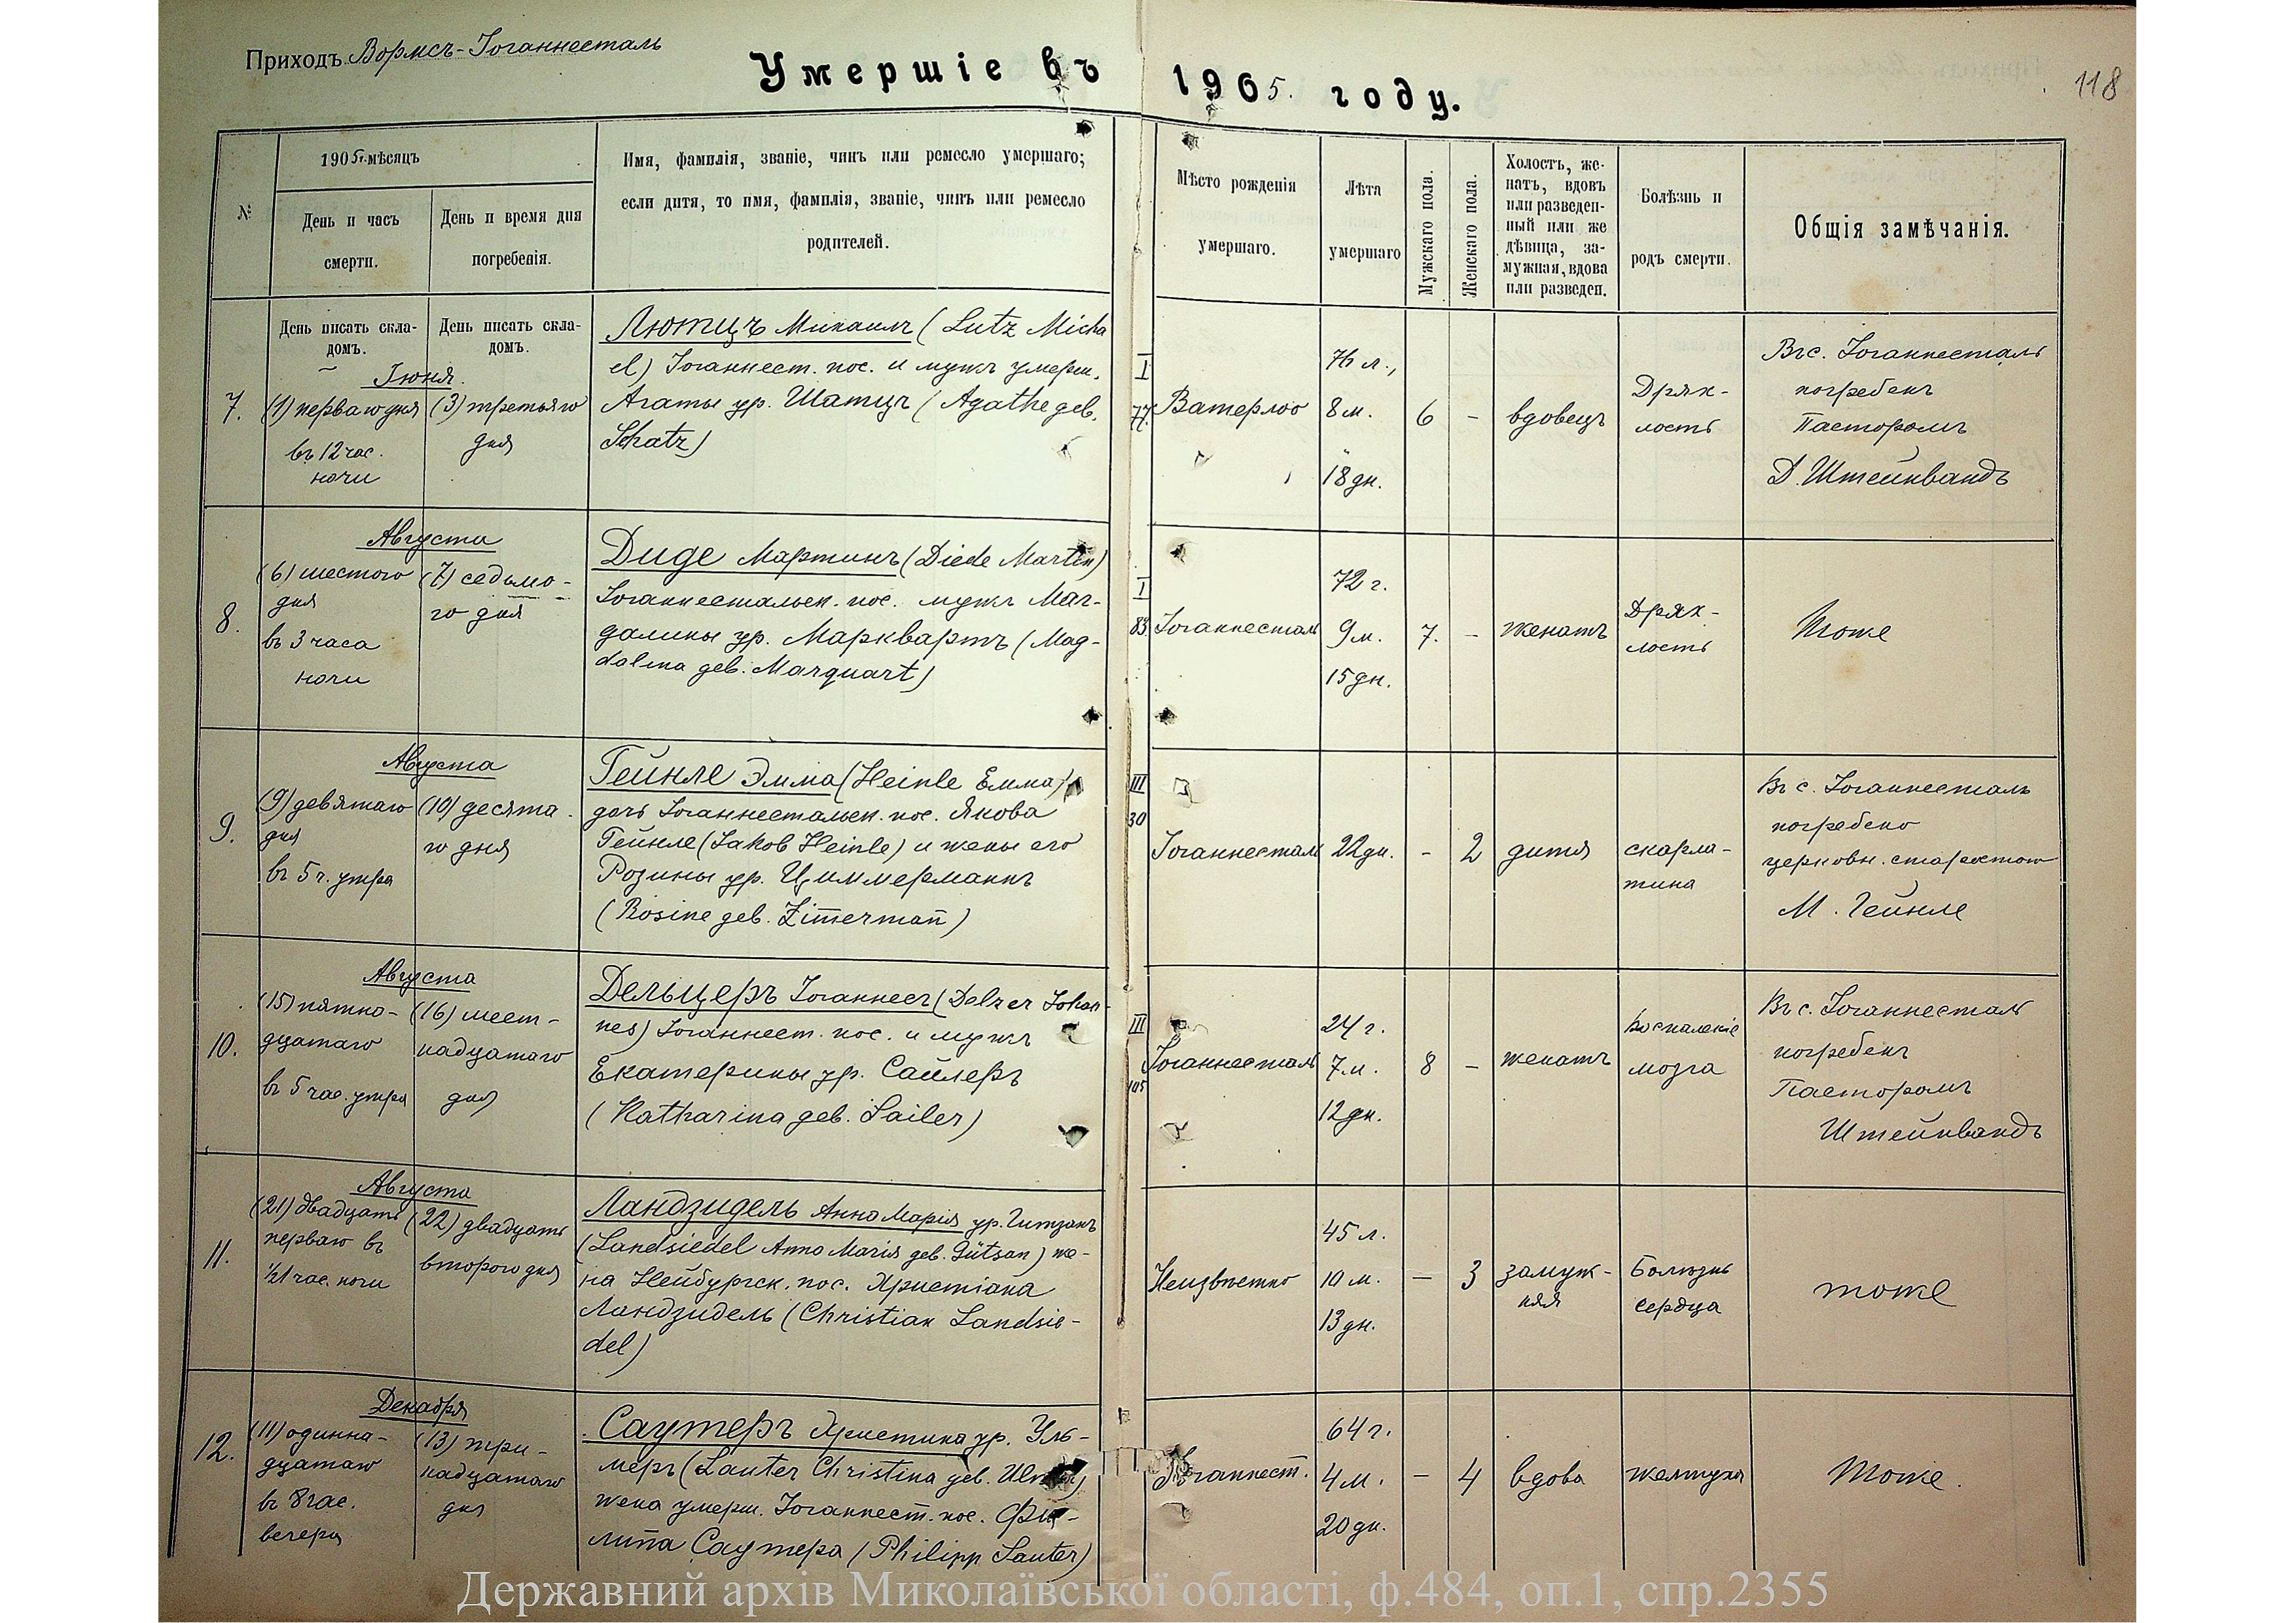 Приходъ Вормсъ-Іоганнесталь
Умершіе въ 1905. году.
118
№
1905 г. мѣсяцъ
День и часъ
смерти.
День и время дня
погребенія.
Имя, фамилія, званіе, чинъ или ремесло умершаго;
если дитя, то имя, фамилія, званіе, чинъ или ремесло
родителей.
Мѣсто рожденія
умершаго.
Лѣта
умершаго
Мужскаго пола.
Женскаго пола.
Холостъ, же-
натъ, вдовъ
или разведен-
ный или же
дѣвица, за-
мужная, вдова
или разведен.
Болѣзнь и
родъ смерти.
Общія замѣчанія.
День писать скла-
домъ.
День писать скла-
домъ.
Іюня.
7.
(1) перваго дня
въ 12 час.
ночи
(3) третьяго
дня
Лютцъ Михаилъ (Lutz Micha
el) Іоганнест. пос. и мужъ умерш.
Агаты ур. Шатцъ (Agathe geb.
Schatz)
I
77.
Ватерлоо
76 л.,
8 м.
18 дн.
6
-
вдовецъ
Дрях-
лость
Въ с. Іоганнесталь
погребенъ
Пасторомъ
Д. Штейнвандъ
Августа
8.
(6) шестого
дня
въ 3 часа
ночи
(7) седьмо-
го дня
Диде Мартинъ (Diede Martin)
Іоганнестальск. пос. мужъ Маг-
далины ур. Марквартъ (Mag-
dalina geb. Marquart)
I
83.
Іоганнесталь
72 г.
9 м.
15 дн.
7.
-
женатъ
Дрях-
лость
Тоже
Августа
9.
(9) девятаго
дня
въ 5 ч. утра
(10) десята-
го дня
Гейнле Эмма (Heinle Emma)
дочь Іоганнестальск. пос. Якова
Гейнле (Jakob Heinle) и жены его
Розины ур. Циммерманнъ
(Rosine geb. Zim̄erman̄)
III
30
Іоганнесталь
22 дн.
-
2
дитя
скарла-
тина
Въ с. Іоганнесталь
погребено
церковн. старостою
М. Гейнле
Августа
10.
(15) пятна-
дцатаго
въ 5 час. утра
(16) шест-
надцатаго
дня
Дельцеръ Іоганнесъ (Delzer Johan-
nes) Іоганнест. пос. и мужъ
Екатерины ур. Сайлеръ
(Katharina geb. Sailer)
III
105
Іоганнесталь
24 г.
7 м.
12 дн.
8
-
женатъ
Воспаленіе
мозга
Въ с. Іоганнесталь
погребенъ
Пасторомъ
Штейнвандъ
Августа
11.
(21) двадцать
перваго въ
½1 час. ночи
(22) двадцать
второго дня
Ландзидель Анна Марія ур. Гитзанъ
(Landsiedel Anna Maria geb. Gütsan) же-
на Нейбургск. пос. Христіана
Ландзидель (Christian Landsie-
del)
Неизвѣстно
45 л.
10 м.
13 дн.
-
3
замуж-
няя
Болѣзнь
сердца
тоже
Декабря
12.
(11) одинна-
дцатаго
въ 8 час.
вечера
(13) три-
надцатаго
дня
Саутеръ Христина ур. Уль-
меръ (Sauter Christina geb. Ulmer)
жена умерш. Іоганнест. пос. Фи-
липа Саутера (Philipp Sauter)
Іоганнест.
64 г.
4 м.
20 дн.
-
4
вдова
желтуха
Тоже.
Державний архів Миколаївської області, ф.484, оп.1, спр.2355